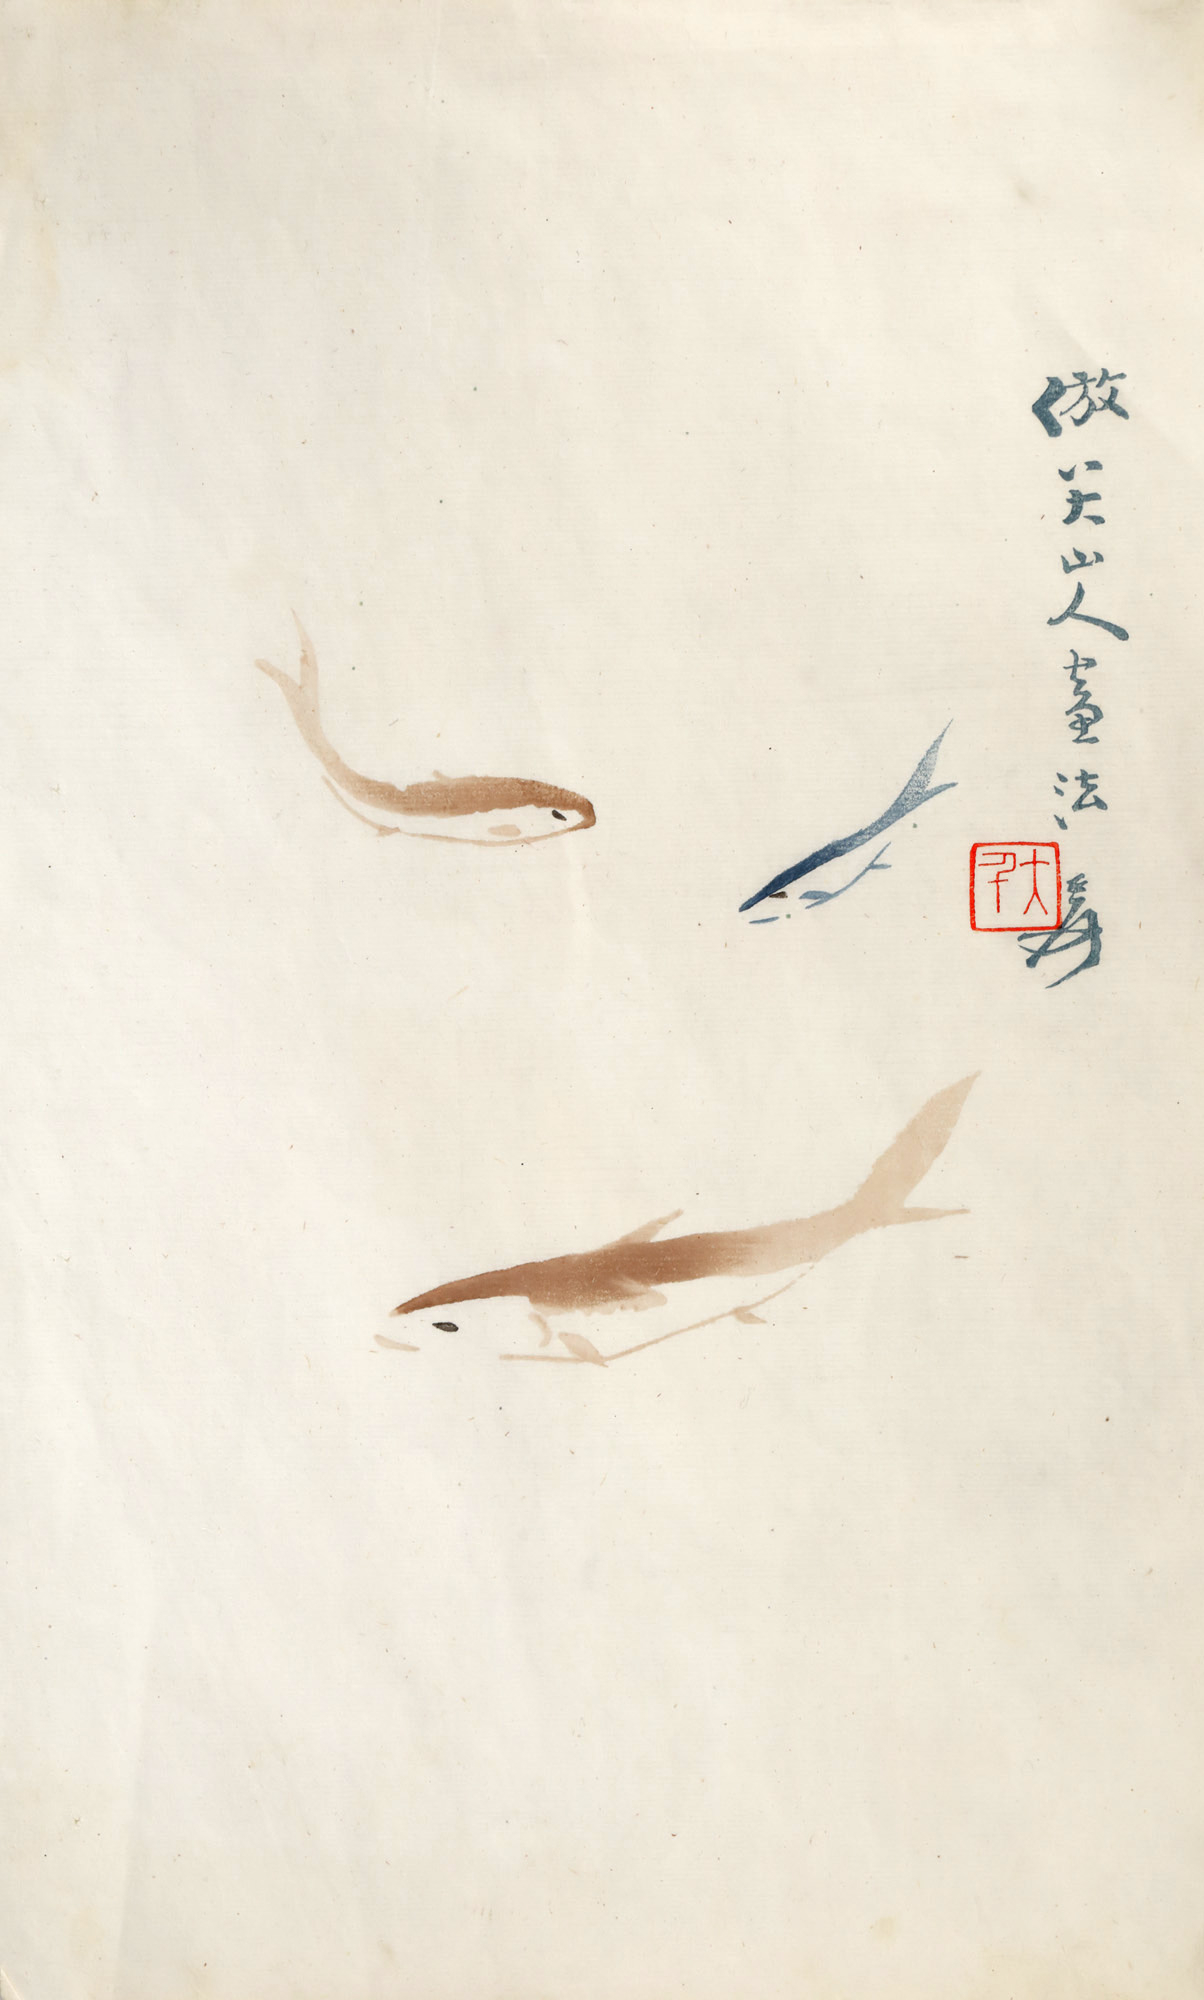 倣八大山人畫法 爰
大千